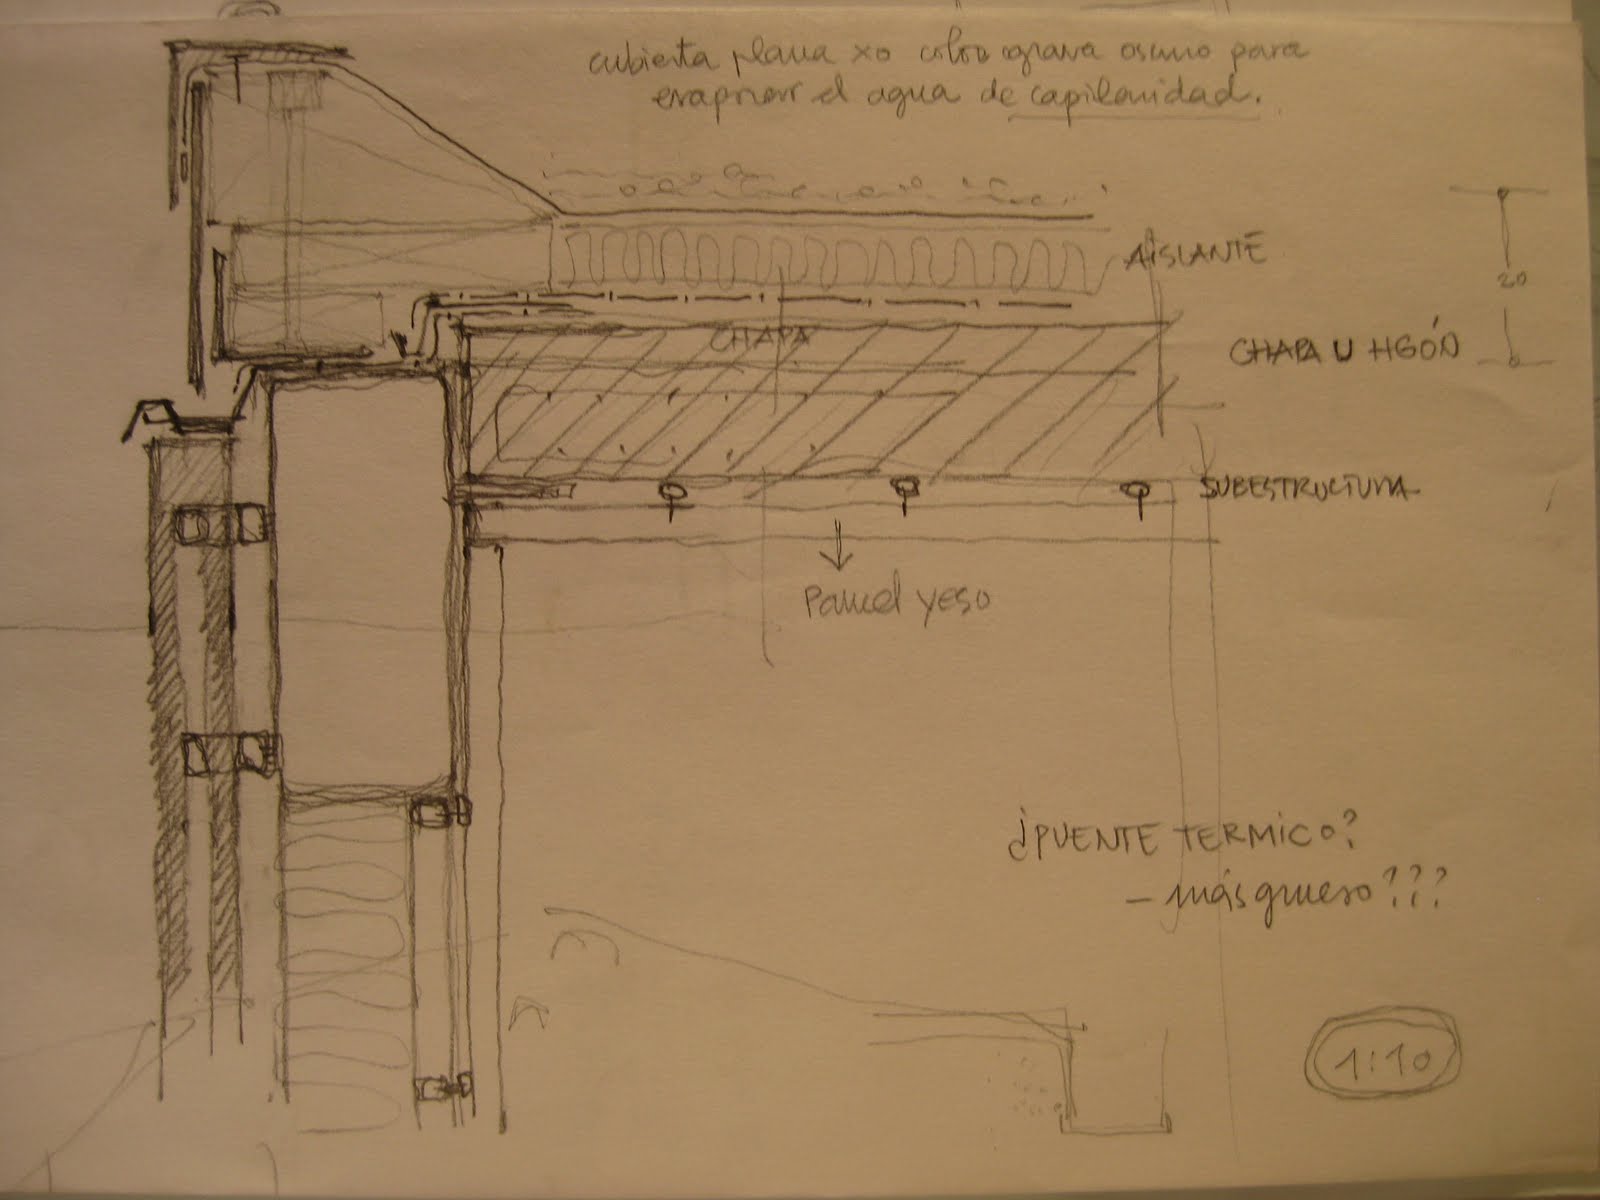 cubierta plana xo color grava oscuro para
evaporar el agua de capilaridad.
AISLANTE
20
CHAPA
CHAPA U HGÓN
SUBESTRUCTURA
Panel yeso
¿PUENTE TERMICO?
- más grueso???
1:10